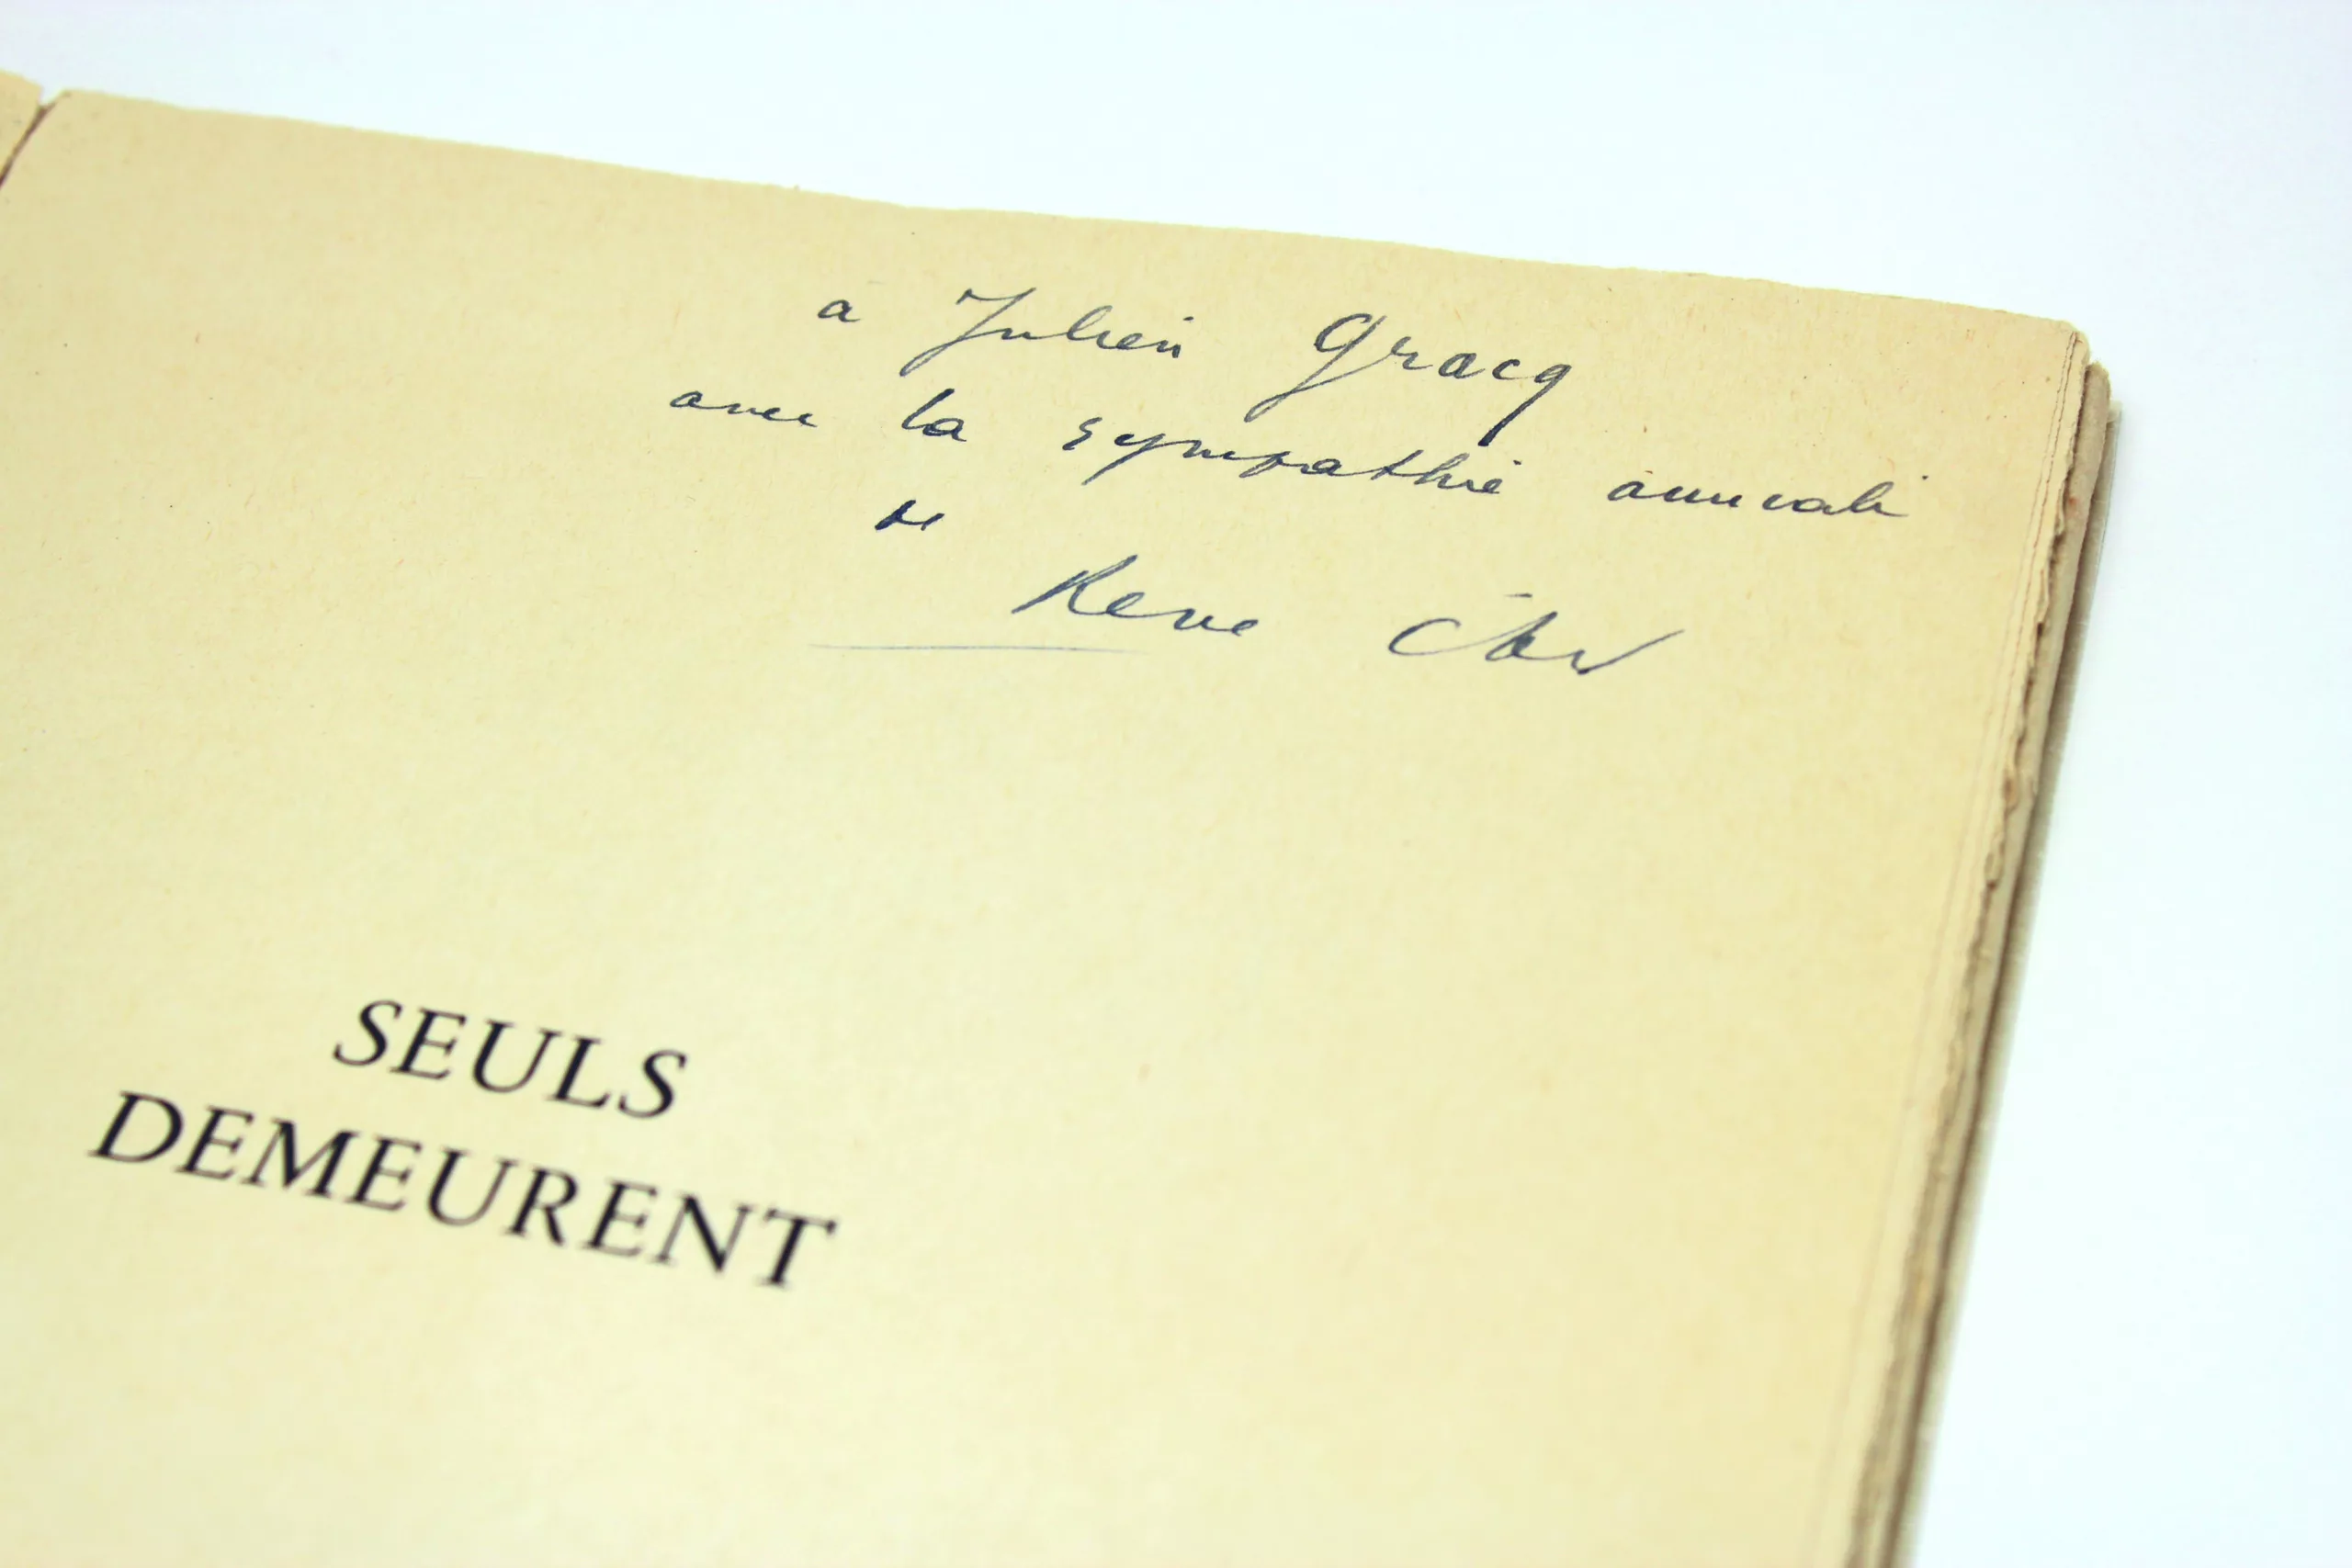 a Julien Gracq
avec la sympathie amicale
de
René Char
SEULS
DEMEURENT